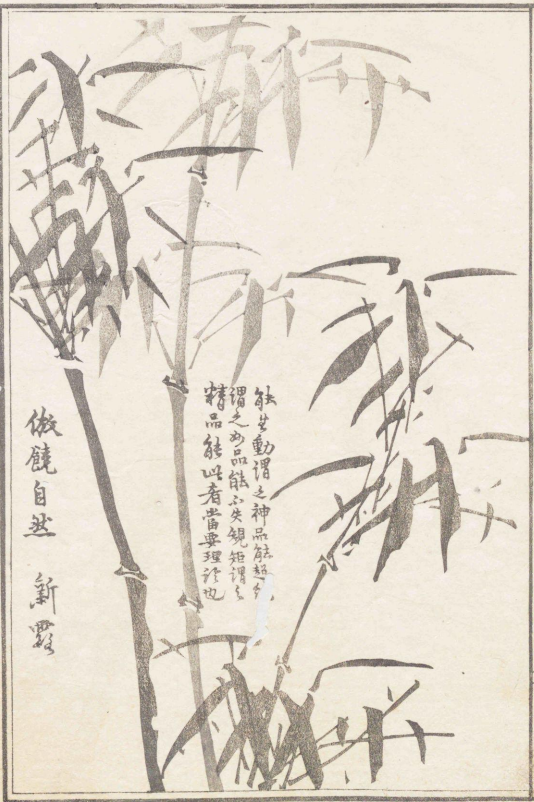 能生動謂之神品能超
謂之妙品能不失規矩謂之
精品能此者當要理許也
倣饒自然 新霽